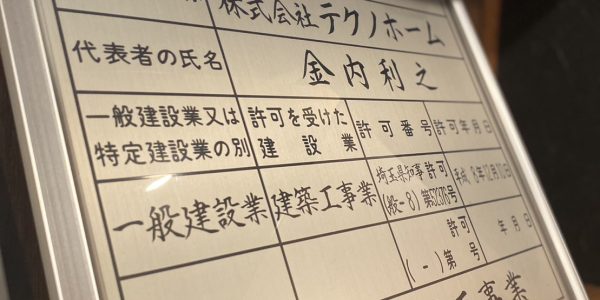 株式会社テクノホーム
代表者の氏名
金内利之
一般建設業又は
特定建設業の別
許可を受けた
建設業
許可番号
許可年月日
一般建設業
建築工事業
埼玉県知事 許可
(般-8) 第52378号
平成 8年12月10日
許可
( - ) 第 号
年 月 日
工事業